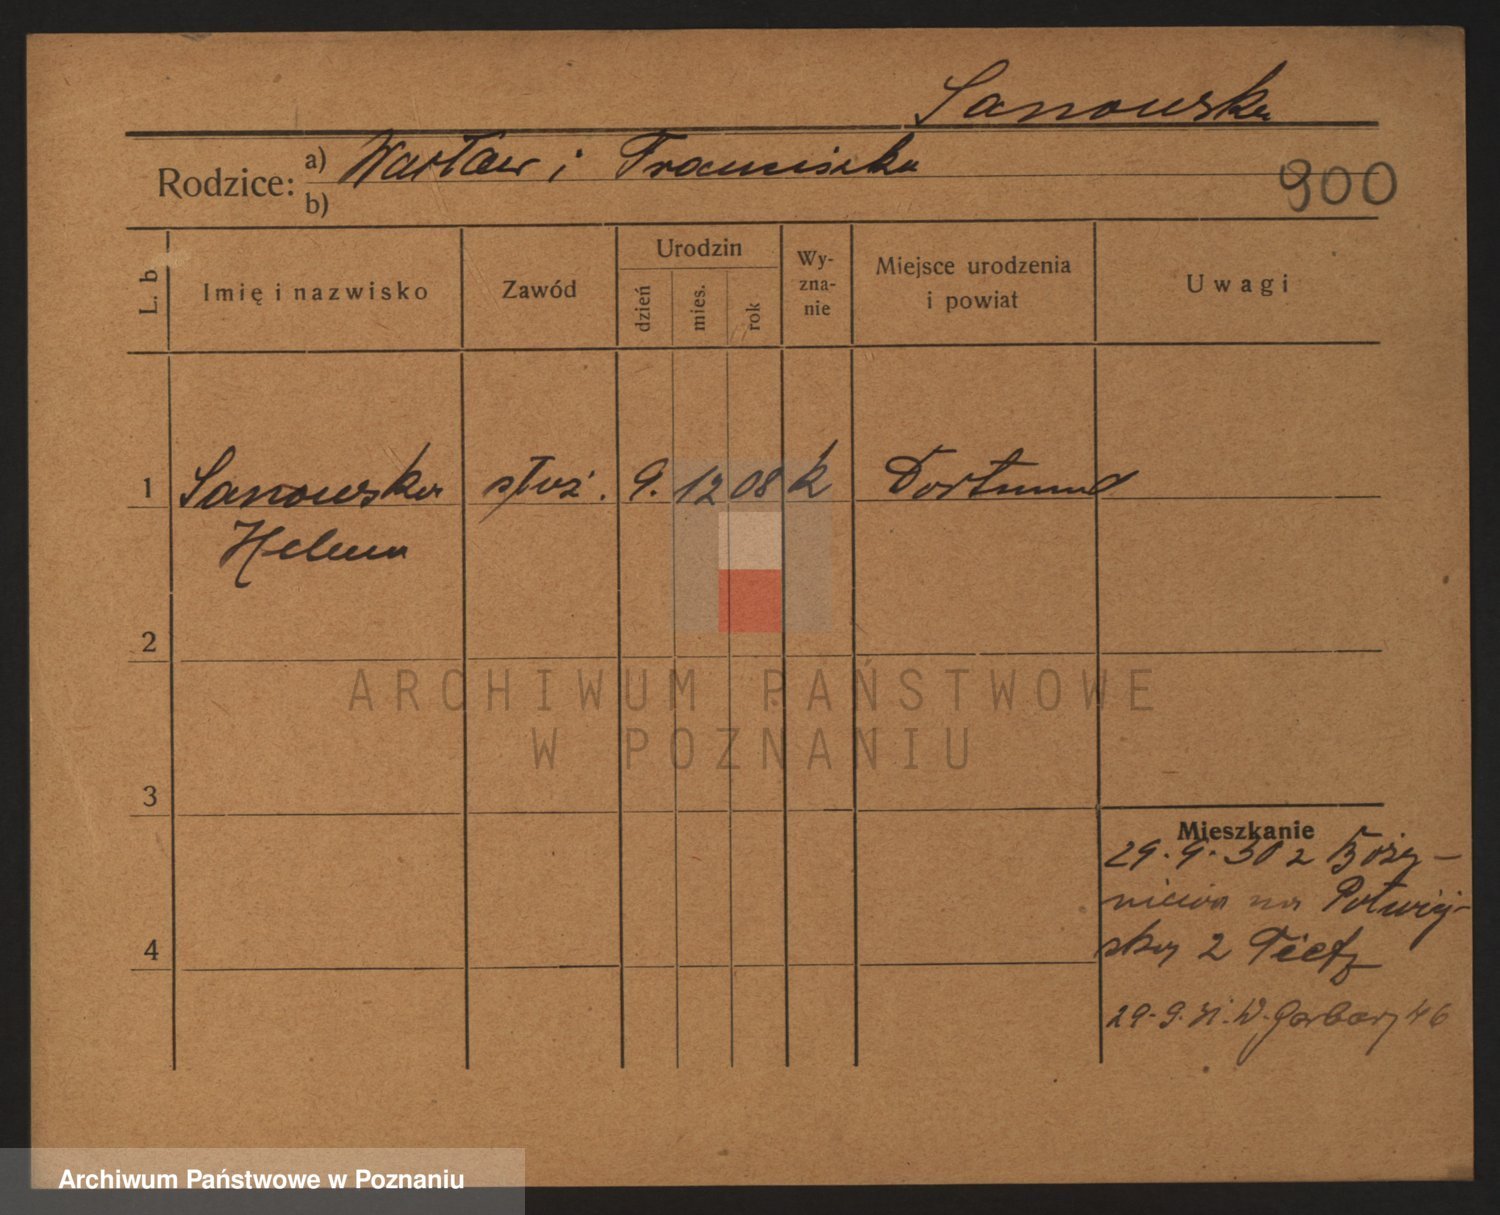 Sanowska
Rodzice: a) Wacław i Franciszka
b)
900
L. b
Imię i nazwisko
Zawód
Urodzin
dzień
mies.
rok
Wy-
zna-
nie
Miejsce urodzenia
i powiat
Uwagi
1 Sanowska służ. 9. 12 08 k Dortmund
Helena
2
ARCHIWUM PAŃSTWOWE
W POZNANIU
3
Mieszkanie
29.9.30 z
na
2 Tietz
4
29.9.31. W. Garbary 46
Archiwum Państwowe w Poznaniu